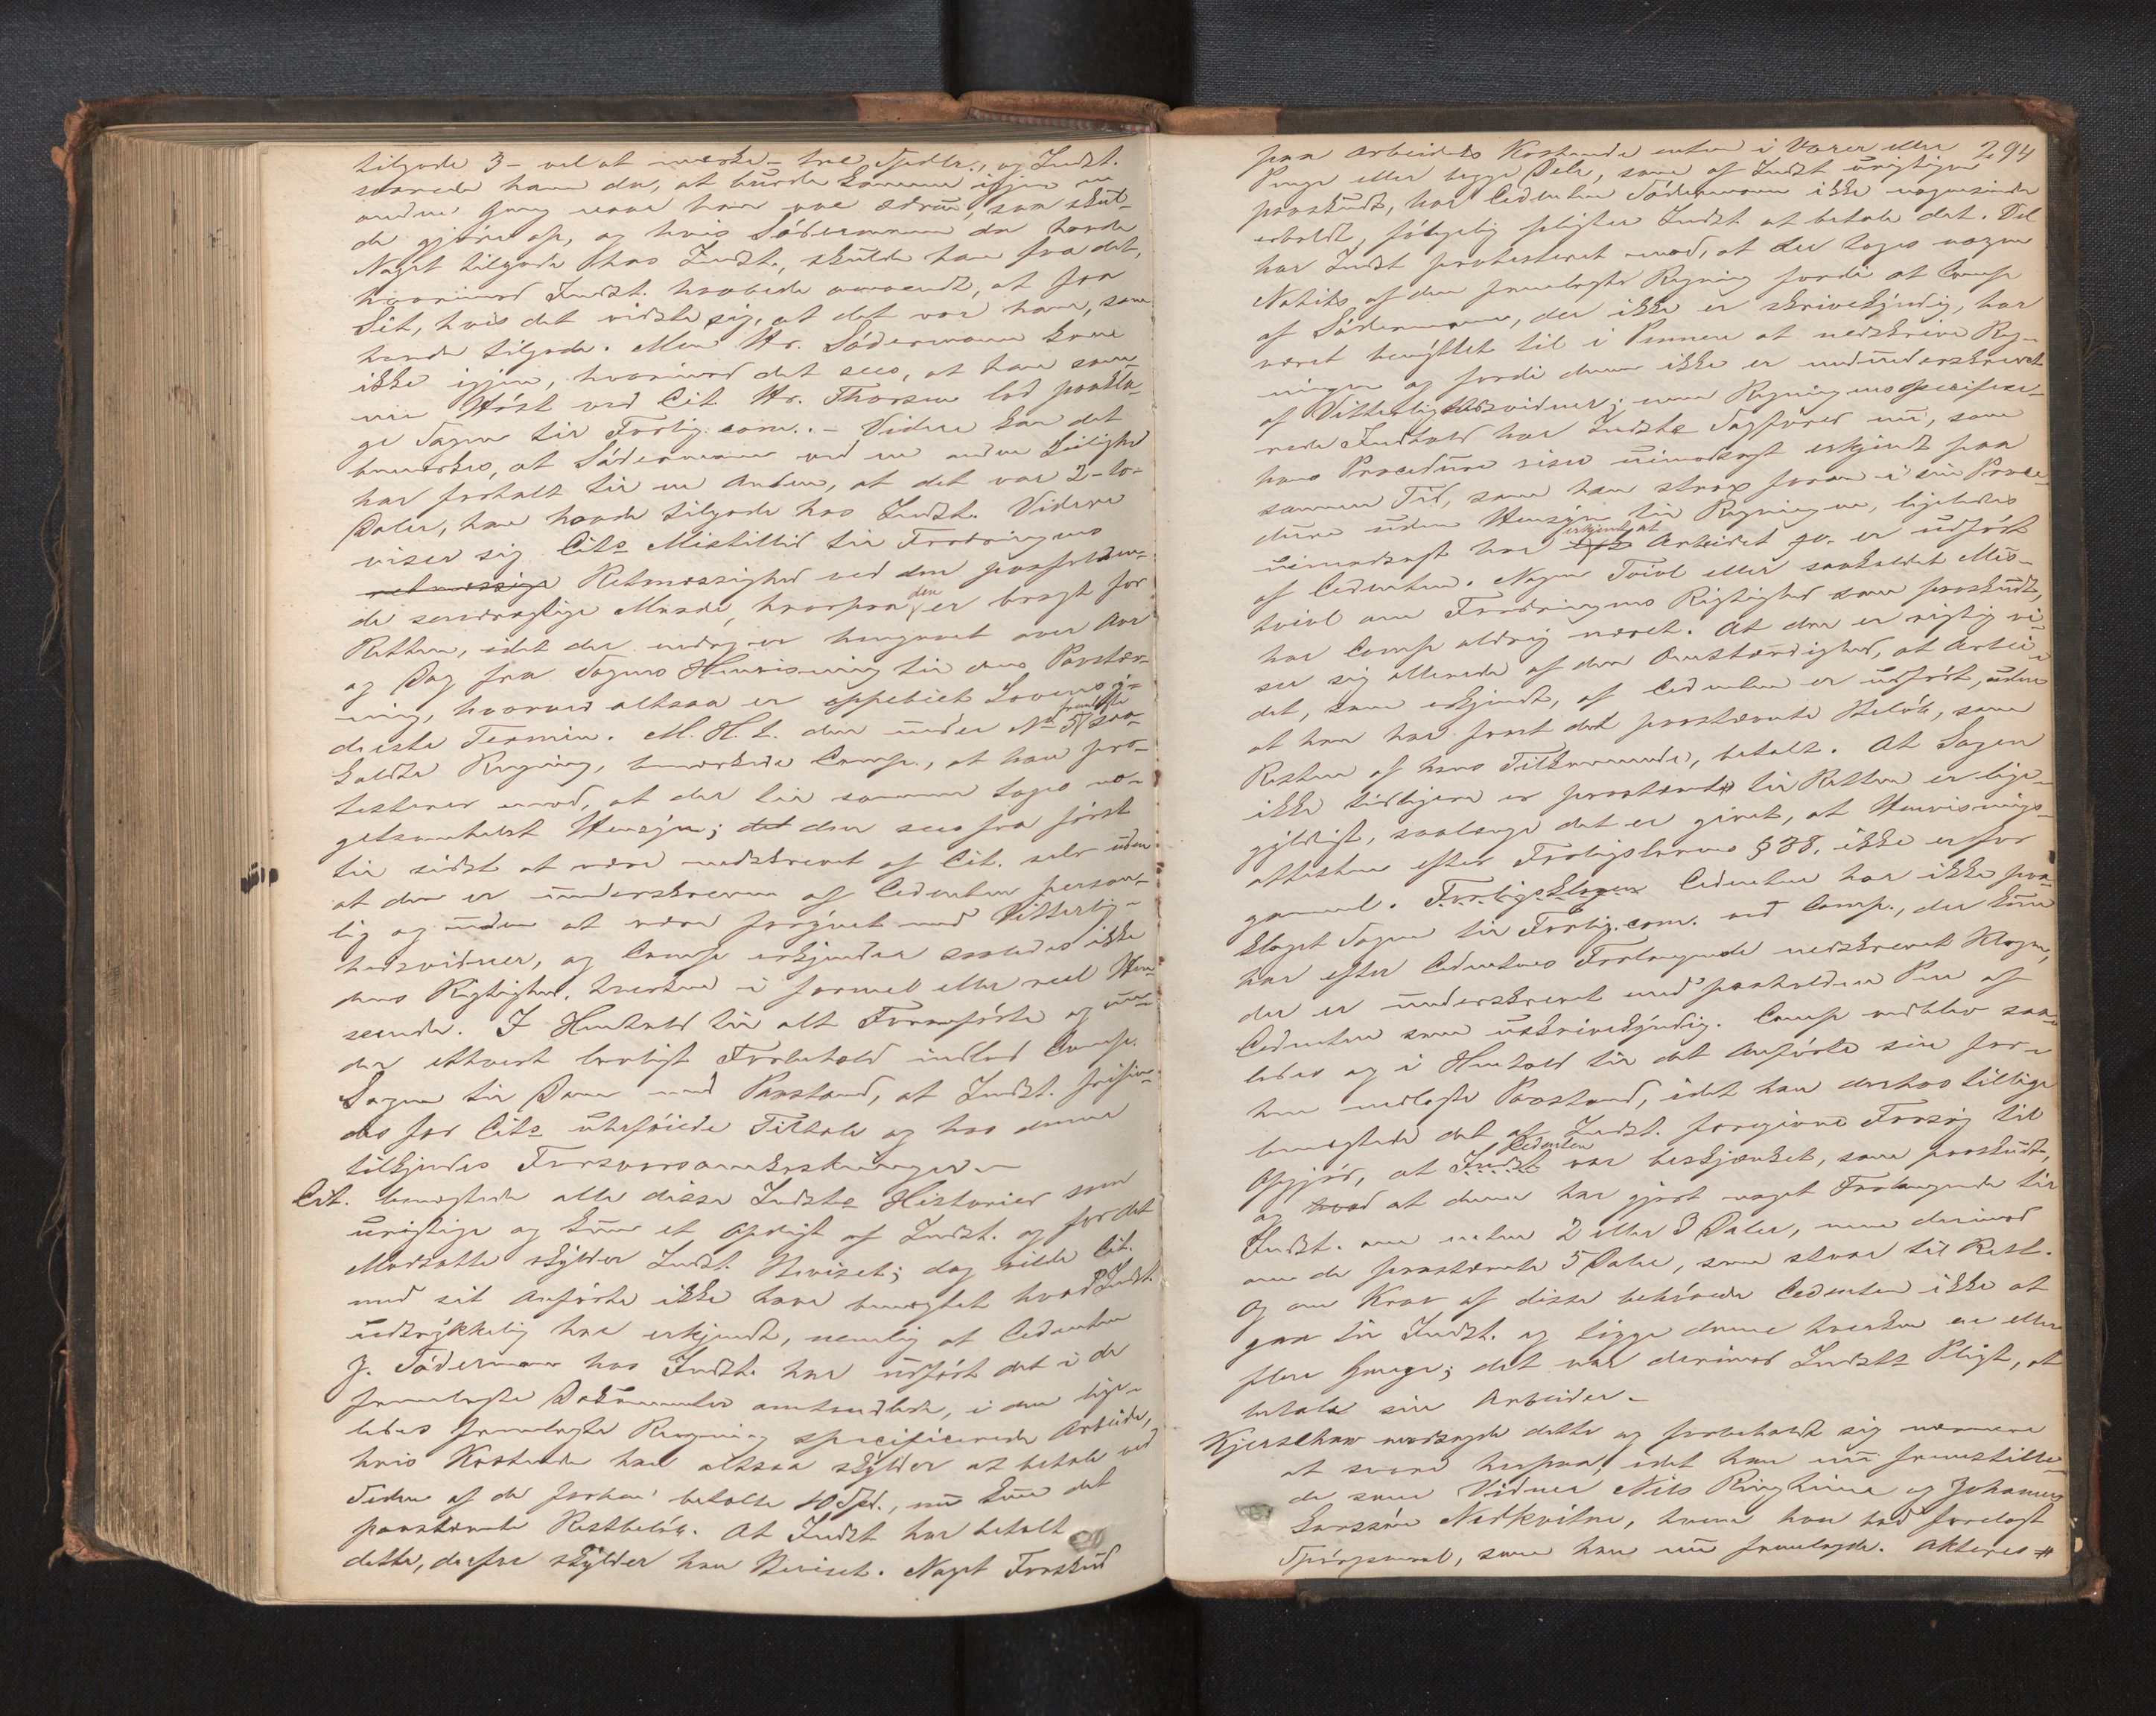 tilgode 3 – vel at mærke – tre Spdlr., og Indst.
svarede ham da, at burde komme igjen en
anden Gang naar han var ædru, saa skul-
de gjøre op, og hvis Södermann da havde
Noget tilgode hos Indst., skulde han faa det,
hvorimod Indst. havbede omvendt, at faa
Sit, hvis det vidste sig, at det var ham, som
havde tilgode. Men Hr. Södermann kom
ikke igjen, hvorimod det sees, at han sam-
me Höst ved Cit. Hr. Thorsen lod paakla-
ge Sagen til Forlig.com.. – Videre kan det
bemærkes, at Södermann ved en anden Leilighed
har fortalt til en Anden, at det var 2 – to –
Daler, han havde tilgode hos Indst. Videre
viser sig Cits Mistillid til Fordringens
retmæssige Retmæssighed ved den paafalden-
de sendrægtige Maade, hvorpaa den er bragt for
Retten, idet der endog er hengaaet over Aar
og Dag fra Sagens Henvisning til dens Paastæv-
ning, hvorved altsaa er oppebiet Lovens y-
derste Termin. M. H. t. den under No 5 fremlagte saa-
kaldte Regning, bemærkede Comp., at han pro-
testerer mod, at der til samme toges no-
getsomhelst Hensyn; det den sees fra först
til sidst at være nedskrevet af Cit. selv uden
at den er underskreven af Cedenten person-
lig og uden at være forsynet med Vitterlig-
hedsvidner, og Comp erkjender saaledes ikke
dens Rigtighed, hverken i formel eller reel Hen-
seende. I Henhold til alt Fremförte og un-
der ethvert lovligt Forbehold indlod Comp.
Sagen til Dom med Paastand, at Indst. frifin-
des for Cits uheföiede Tiltale og hos denne
tilkjendes Forsvarsomkostninger. –
Cit. benægtede alle disse Indsts Historier som
urigtige og kun et Opdigt af Indst. og for det
Modsatte skylder Indst. Beviset; dog vilde Cit.
med sit Anförte ikke have benægtet hvad Indst.
udtrykkelig har erkjendt, nemlig at Cedenten
J. Södermann hos Indst. har udfört det i de
fremlagte Dokumenter omhandlede, i den lige-
ledes fremlagte Regning specificerede Arbeide,
hvis Kostende han altsaa skylder at betale ved
Siden af de forhen betalte 10 Spd., nu kun det
paastævnte Restbelöb. At Indst har betalt
dette, derfor skylder han Beviset. Noget Forskud
294
paa Arbeidets Kostende enten i Varer eller
Penge eller begge Dele, som af Indst urigtigen
paaskudt, har Cedenten Södermann ikke nogensinde
erholdt, fölgelig pligter Indst at betale det. Vel
har Indst protesteret mod, at der toges nogen
Notits af den fremlagte Regning fordi at Comp
af Södermann, der ikke er skrivekyndig, har
været benyttet til i Pennen at nedskrive Reg-
ningen og fordi denne ikke er medunderskrevet
af Vitterlighedsvidner; men Regningens specifice-
rede Indhold har Indsts Sagförer nu, som
hans Procedure viser uimodsagt erkjendt paa
samme Tid, som han strax foran i sin Proce-
dure uden Hensyn til Regningen, ligeledes
uimodsagt har erkjendt, at Arbeidet ɔ: er udfört
af Cedenten. Nogen Tvivl eller saakaldet Mis-
tvivl om Fordringens Rigtighed som paaskudt,
har Comp aldrig næret. At den er rigtig vi-
ser sig allerede af den Omstændighed, at Arbei-
det, som erkjendt, af Cedenten er udfört, uden
at han har faaet det paastævnte Belöb, som
Resten af hans Tilkommende, betalt. At Sagen
ikke tidligere er paastævnt til Retten er lige-
gyldigt, saalænge det er givet, at Henvisnings-
attesten efter Forligslovens § 38, ikke er for
gammel. Forligsklagen Cedenten har ikke paa-
klaget Sagen til Forlig.com. ved Comp., der kun
har efter Cedentens Forlangende nedskrevet Klagen,
der er underskrevet med paaholden Pen af
Cedenten som uskrivekyndig. Comp vedblev saa-
ledes og i Henhold til det Anförte sin for-
hen nedlagte Paastand, idet han derhos tillige
benægtede det af Indst. foregivne Forsög til
Opgjör, at Indst Cedenten var beskjænket, som paaskudt,
og hvad at denne har gjort noget Forlangende til
Indst. om enten 2 eller 3 Daler, men derimod
om de paastævnte 5 Daler, som staar til Rest.
Og om Krav af disse behövede Cedenten ikke at
gaa til Indst. og tigge denne hverken en eller
flere Gange; det var derimod Indsts Pligt, at
betale sin Arbeider. –
Kjerschow modsagde dette og forbeholdt sig nærmere
at svare herpaa, idet han nu fremstille-
de som Vidner Nils Ringheim og Johannes
Larssön Nedkvitne, hvem han bad forelagt
Spörgsmaal, som han nu fremlagde. Akteres #